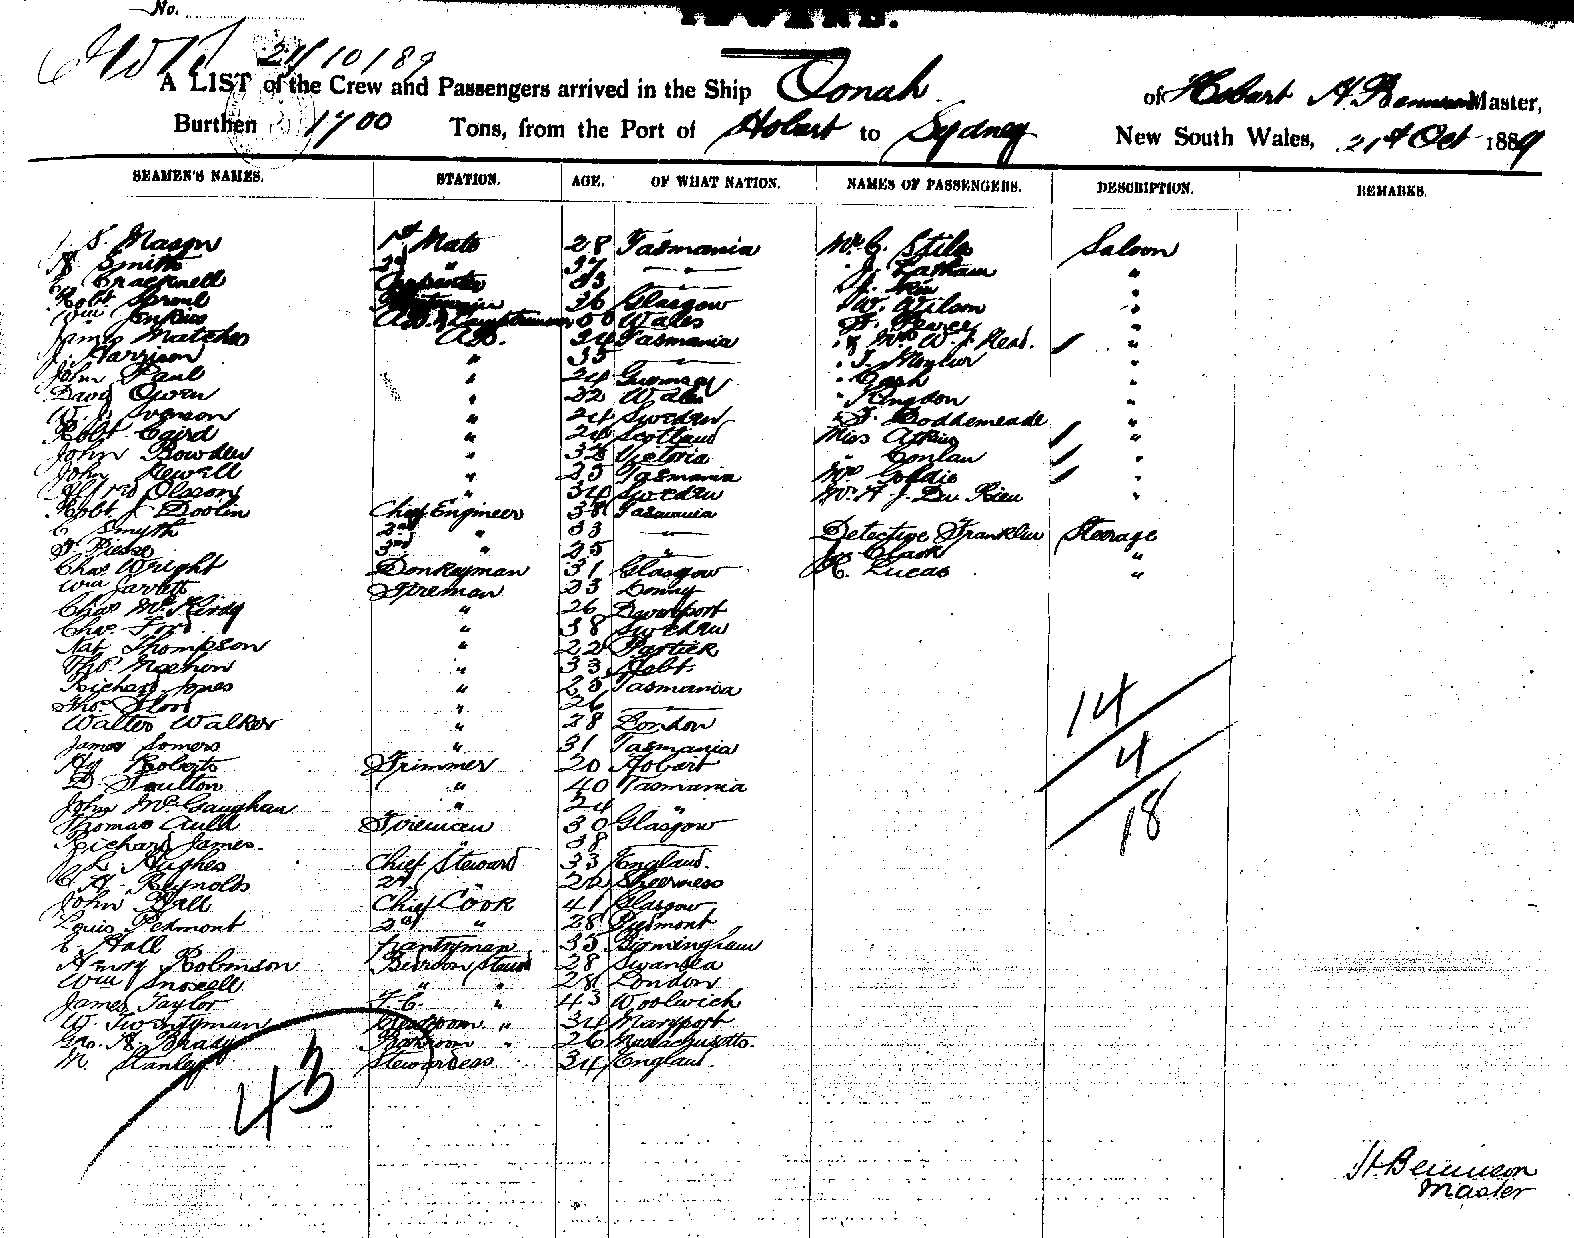 No.
21/10/89
A LIST of the Crew and Passengers arrived in the Ship Oonah of Hobart H. Bennison Master,
Burthen 1700 Tons, from the Port of Hobart to Sydney New South Wales, 21st Oct 1889
SEAMEN'S NAMES. STATION. AGE. OF WHAT NATION. NAMES OF PASSENGERS. DESCRIPTION. REMARKS.
S. Mason 1st Mate 28 Tasmania Mr. C. Stile Saloon
Smith 2nd " 37 " J. Latham "
Cracknell Carpenter 33 "
Robt Sproul 36 Glasgow W. Wilson "
Wm Jenkins A.B. & Lamptrimmer 50 Wales Pearce "
James Matches A.B. 24 Tasmania & Mrs W. J. Read. "
J. Harrison " 35 " "
John Paul " 24 Germany Cash "
David Owen " 22 Wales Kingdon "
W. J. Svenson " 24 Sweden Boddemeade "
Robt Caird " 24 Scotland Miss Atkins "
John Bowden " 32 Victoria " Conlan "
John Jewell " 25 Tasmania Mrs Goldie "
Alfred Olsson " 34 Sweden Mr. A. J. Du Rieu "
Robt J. Doolin Chief Engineer 38 Tasmania
C. Smyth 2nd " 33 " Detective Franklin Steerage
F. Piesse 3rd " 25 " J. Clark "
Chas Wright Donkeyman 31 Glasgow H. Lucas "
Wm Jarrett Fireman 23
Chas " 26 Davenport
Chas Ford " 38 Sweden
Nat Thompson " 22 Partick
Thos. " 33 Hobt.
Richard Jones " 25 Tasmania
Thos. " 26 "
Walter Walker " 28 London
James Somers " 31 Tasmania
Hy Roberts Trimmer 20 Hobart
D. Poulton " 40 Tasmania
John McGaughan " 24 "
Thomas Auld Fireman 30 Glasgow
Richard James. " 38 "
J. L. Hughes Chief Steward 33 England.
C. H. Reynolds 2nd " 22 Sheerness
John Hall Chief Cook 41 Glasgow
Louis Pedmont 2nd " 28 Piedmont
E. Hall Pantryman 35 Birmingham
Henry Robinson Bedroom Stewd 28 Swansea
Wm Snoxell " " 28 London
James Taylor F. C. " 43 Woolwich
W. Twentyman " 34 Maryport
Geo. H. Brady " 26 Massachusetts.
M. Stanley Stewardess 34 England.
14
4
18
43
H. Bennison
Master